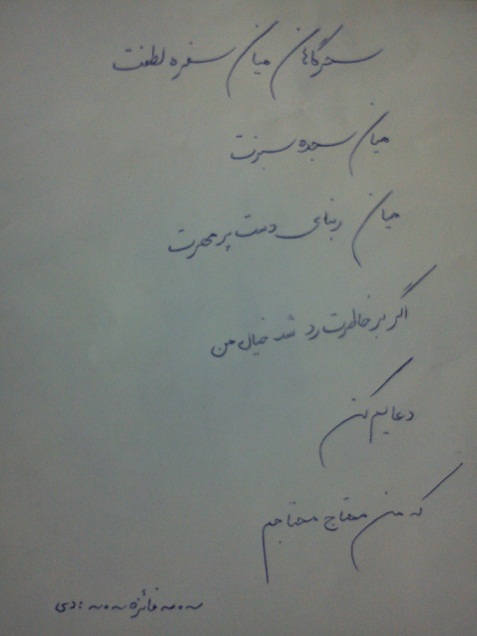 سحرگاهان میان سفره لطفت
میان سجده سبزت
میان ربنای دست پر مهرت
اگر بر خاطرت رد شد خیال من
دعایم کن
که من محتاج محتاجم
فائزه